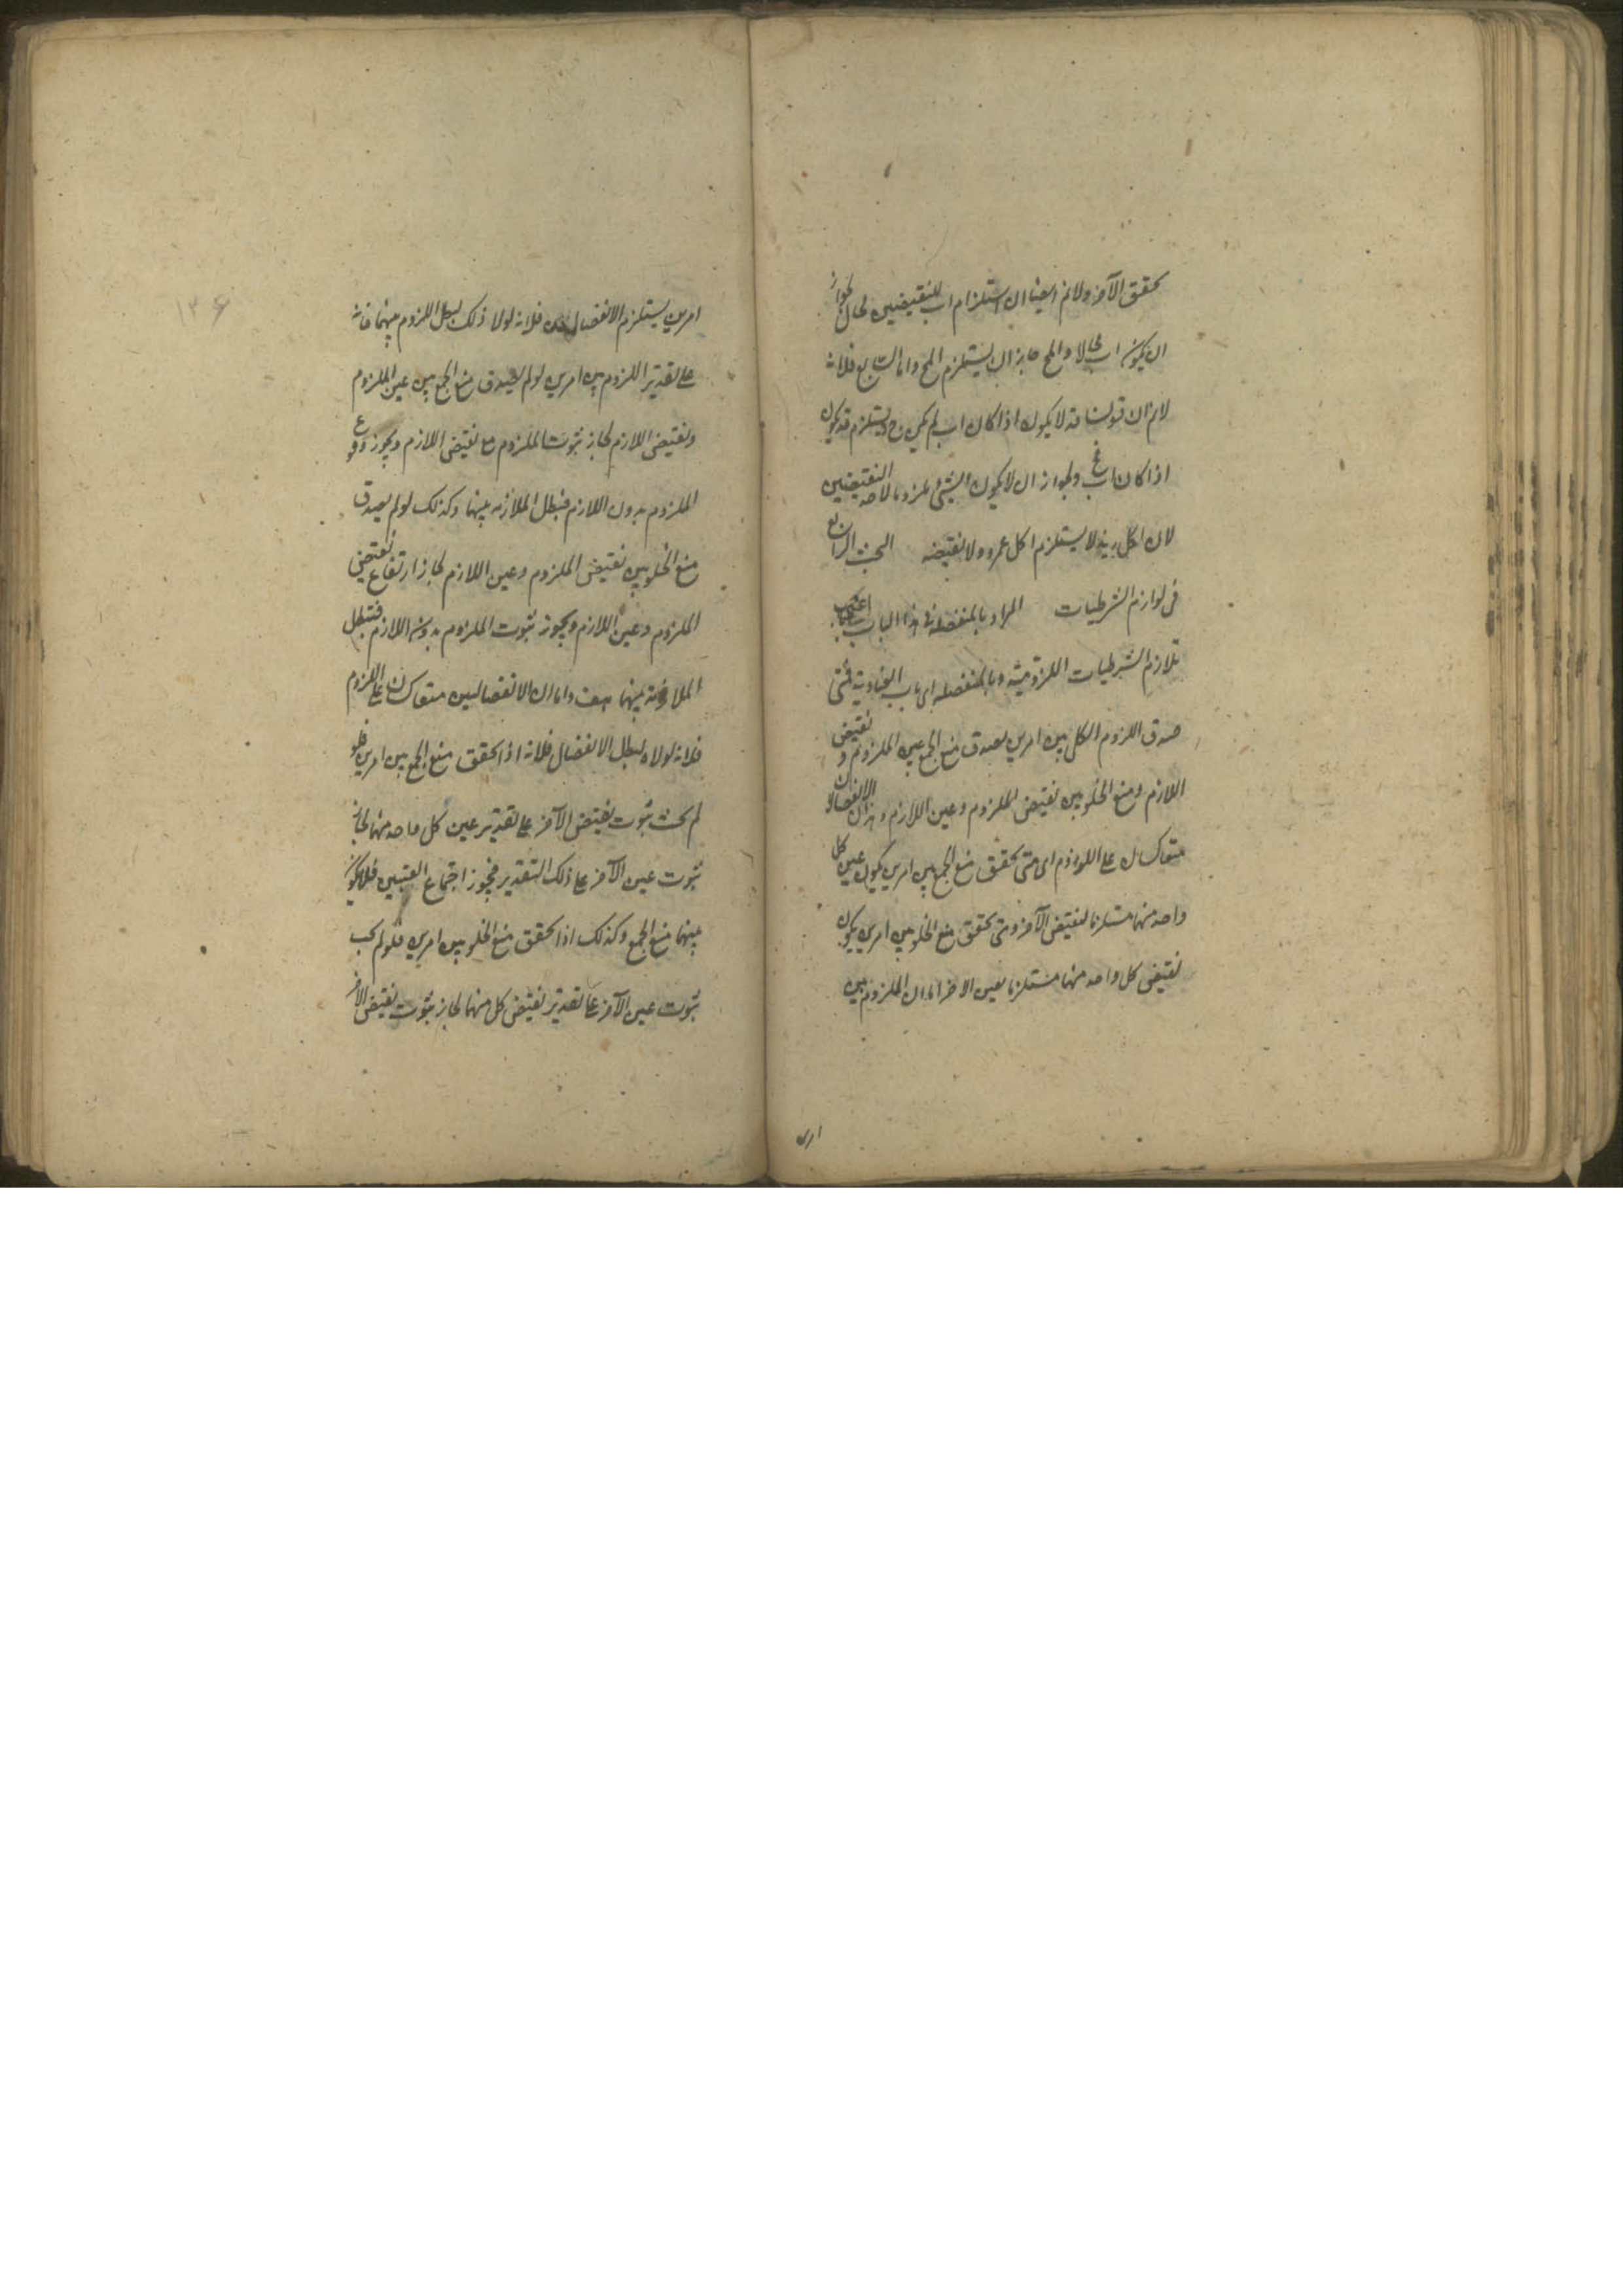 تحقق الآخر ولا نم ايضا ان استلزام اب للنقيضين محال لجواز
ان يكون اب محالا والمح جاز ان يستلزم المح واما السابع فلانه
لا نم ان قولنا قد لا يكون اذا كان اب لم يكن ج د يستلزم قد يكون
اذا كان اب ولجواز ان لا يكون الشئ ملزوما لاحد النقيضين
لان اكل زيد لا يستلزم اكل عمرو ولا نقيضه البحث الرابع
فى لوازم الشرطيات المراد بالمتصلة فى هذا الباب اعنى
تلازم الشرطيات اللزومية وبالمنفصلة اى باب العنادية فمتى
صدق اللزوم الكلى بين امرين يصدق منع الجمع بين الملزوم و نقيض
اللازم ومنع الخلو بين نقيض الملزوم وعين اللازم وهذان الانفصالان
متعاكسان على اللوازم اى متى تحقق منع الجمع بين امرين يكون عين كل
واحد منهما مستلزما لنقيض الآخر ومتى تحقق منع الخلو بين امرين يكون
نقيض كل واحد منهما مستلزما لعين الاخر اما ان الملزوم بين
امرين
امرين يستلزم الانفصالين فلانه لولا ذلك لبطل اللزوم بينهما فانه
على تقدير اللزوم بين امرين لو لم يصدق منع الجمع بين عين الملزوم
ونقيض اللازم لجاز ثبوت الملزوم مع نقيض اللازم ويجوز وقوع
الملزوم بدون اللازم فتبطل الملازمة بينهما وكذلك لو لم يصدق
منع الخلو بين نقيض الملزوم وعين اللازم لجاز ارتفاع نقيض
الملزوم وعين اللازم ويجوز ثبوت الملزوم بدون اللازم فتبطل
الملازمة بينهما هف واما ان الانفصالين متعاكسان على اللزوم
فلانه لولاه لبطل الانفصال فلانه اذا تحقق منع الجمع بين امرين فلو
لم يجب ثبوت نقيض الآخر على تقدير عين كل واحد منهما لجاز
ثبوت عين الآخر على ذلك التقدير فيجوز اجتماع العينين فلا يكون
بينهما منع الجمع وكذلك اذا تحقق منع الخلو بين امرين فلو لم يجب
ثبوت عين الآخر على تقدير نقيض كل منهما لجاز ثبوت نقيض الآخر
١٣٤